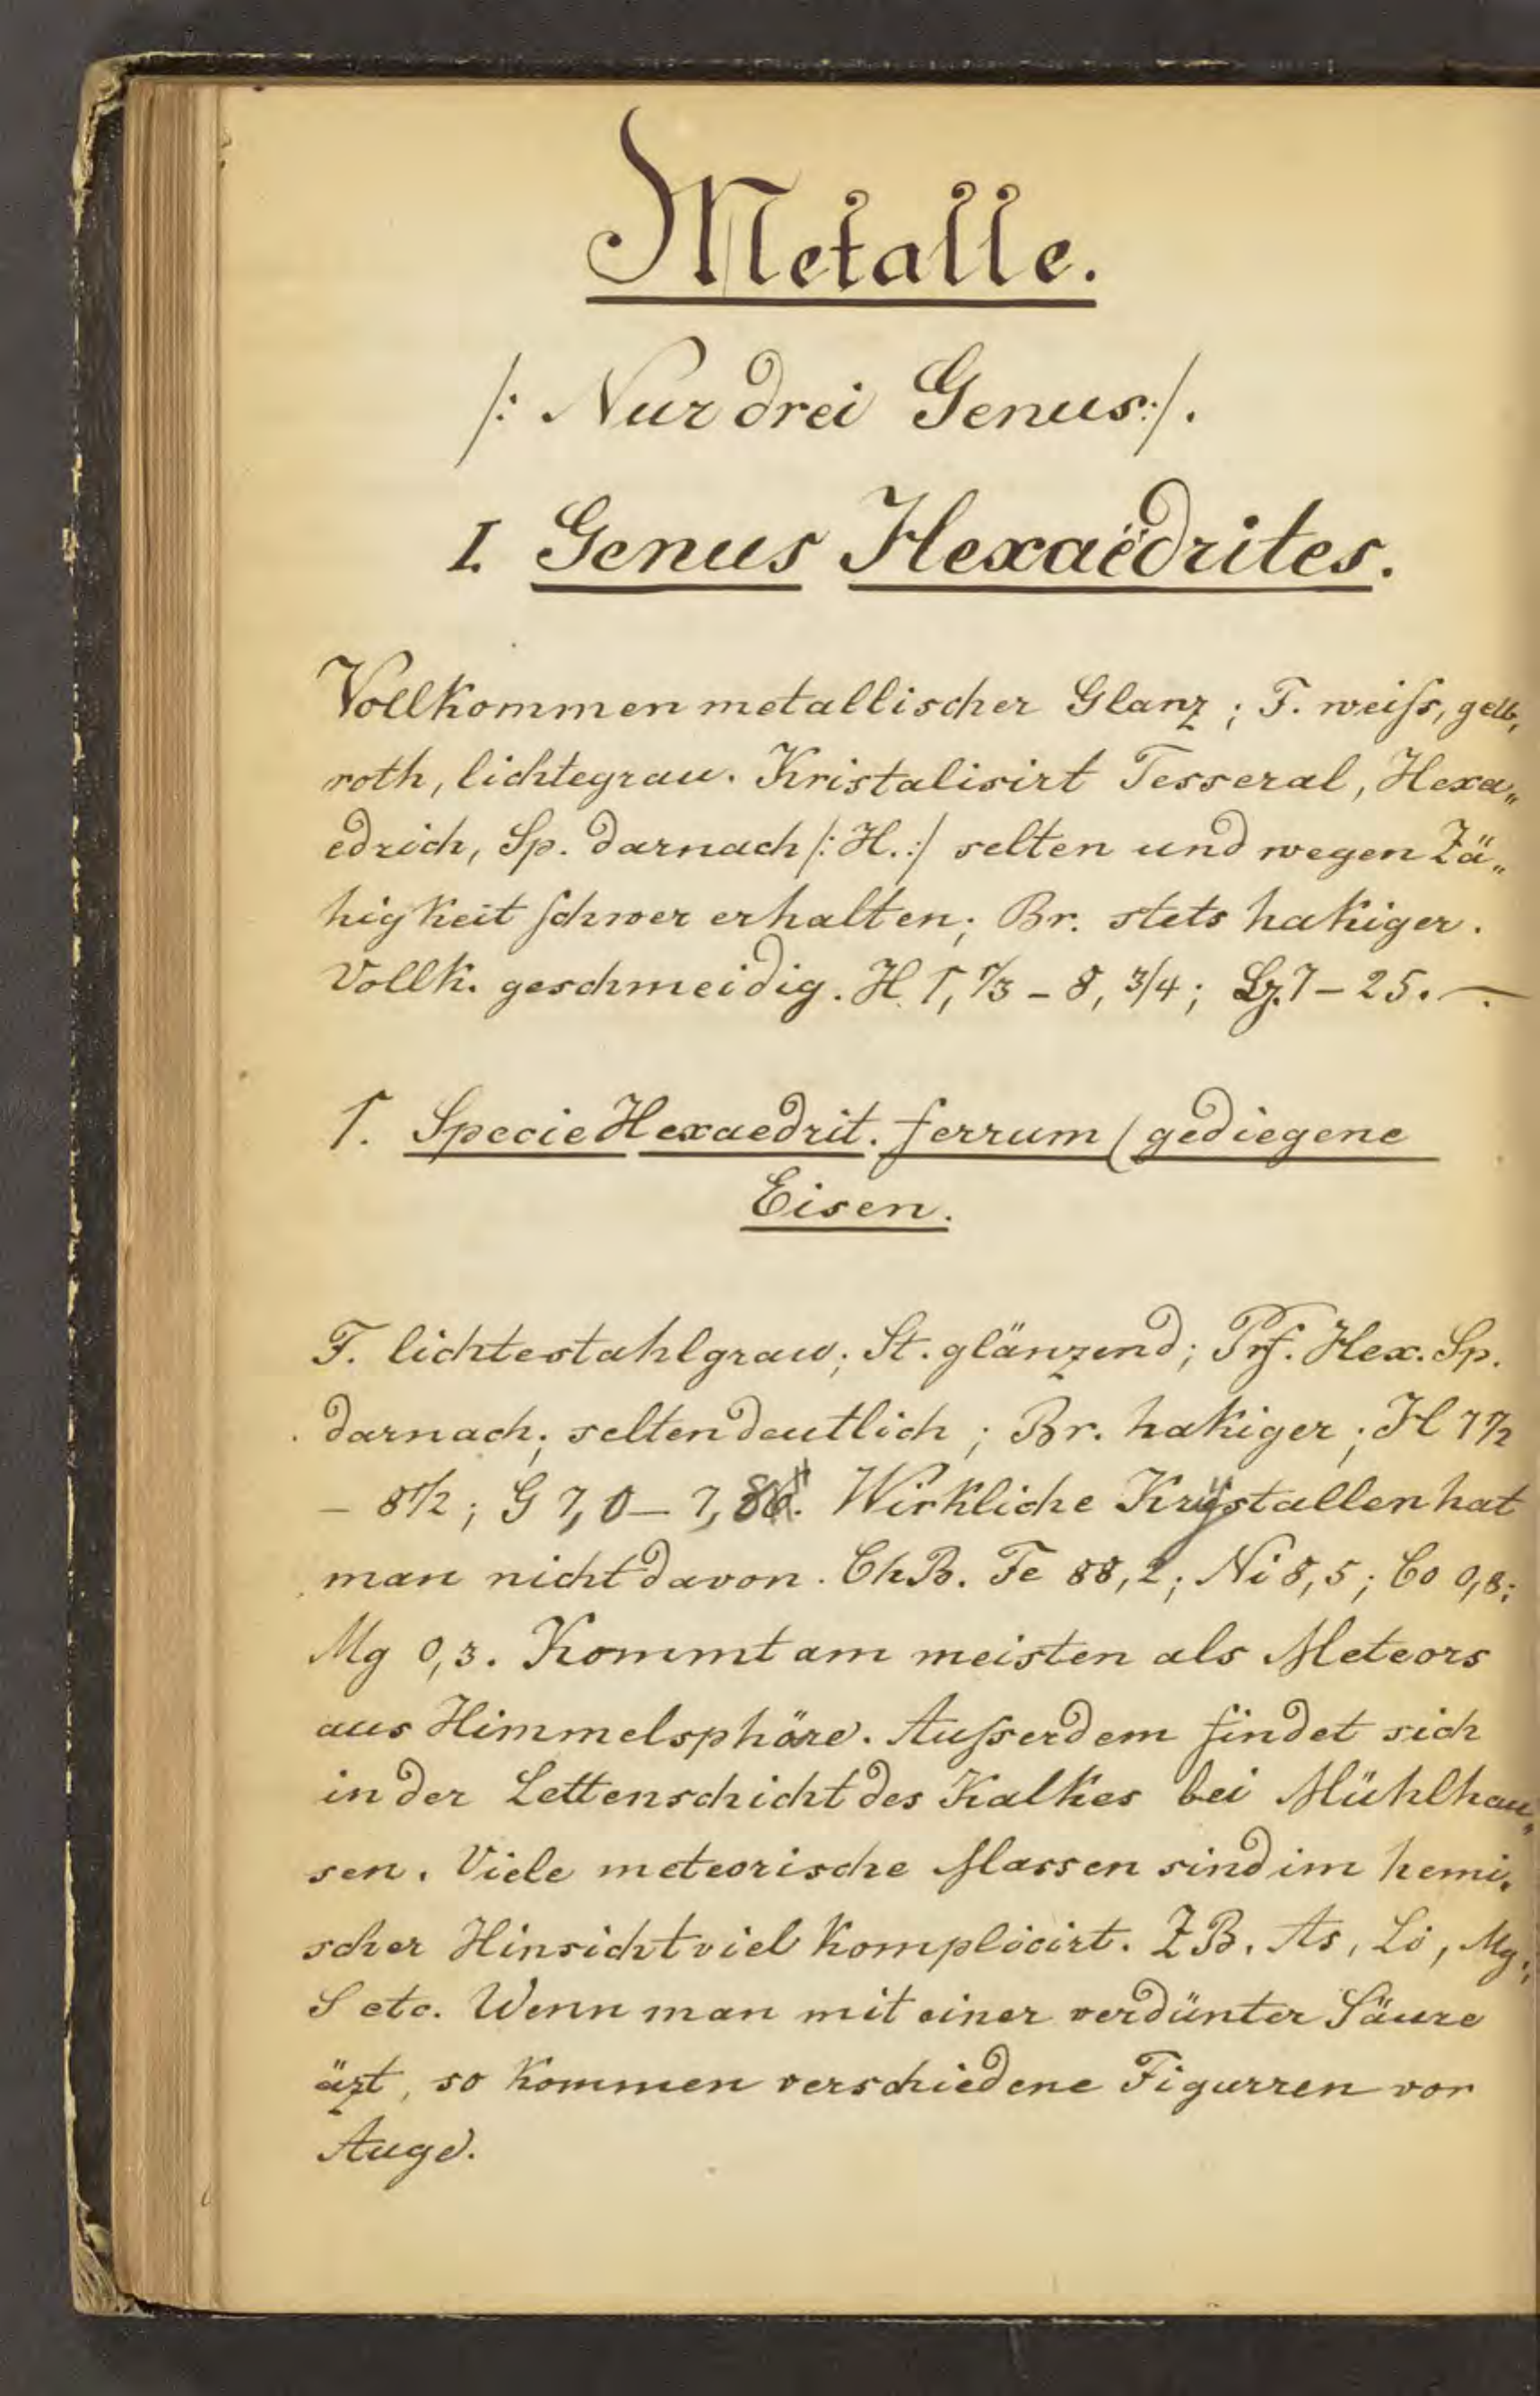 Metalle.
/: Nur drei Genus :/.
I. Genus Hexaëdrites.
Vollkommen metallischer Glanz; F. weiſs, gelb,
roth, lichtegrau. Kristalisirt Tesseral, Hexa„
edrich, Sp. darnach /: H. :/ selten und wegen Zä„
higkeit schwer erhalten; Br. stets hakiger.
Vollk. geschmeidig. H. 1, 1/3 – 8, 3/4; 7 – 25. —
1. Specie Hexaedrit. ferrum (gediegene
Eisen.
F. lichtestahlgrau; St. glänzend; Prf. Hex. Sp.
darnach; selten deutlich; Br. hakiger; H 7 1/2
– 8 1/2; G 7,0 – 7,8. Wirkliche Krystallen hat
man nicht davon. ChB. Fe 88,2; Ni 8,5; Co 0,8;
Mg 0,3. Kommt am meisten als Meteors
aus Himmelsphäre. Auſserdem findet sich
in der Lettenschicht des Kalkes bei Mühlhau„
sen. Viele meteorische Massen sind im hemi„
scher Hinsicht viel komplicirt. Z B. As, Li, Mg;
S etc. Wenn man mit einer verdünter Säure
äzt, so kommen verschiedene Figurren vor
Auge.